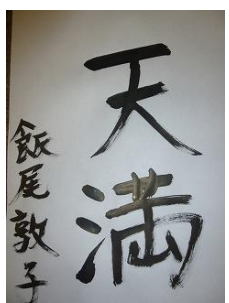 天満
飯尾敦子